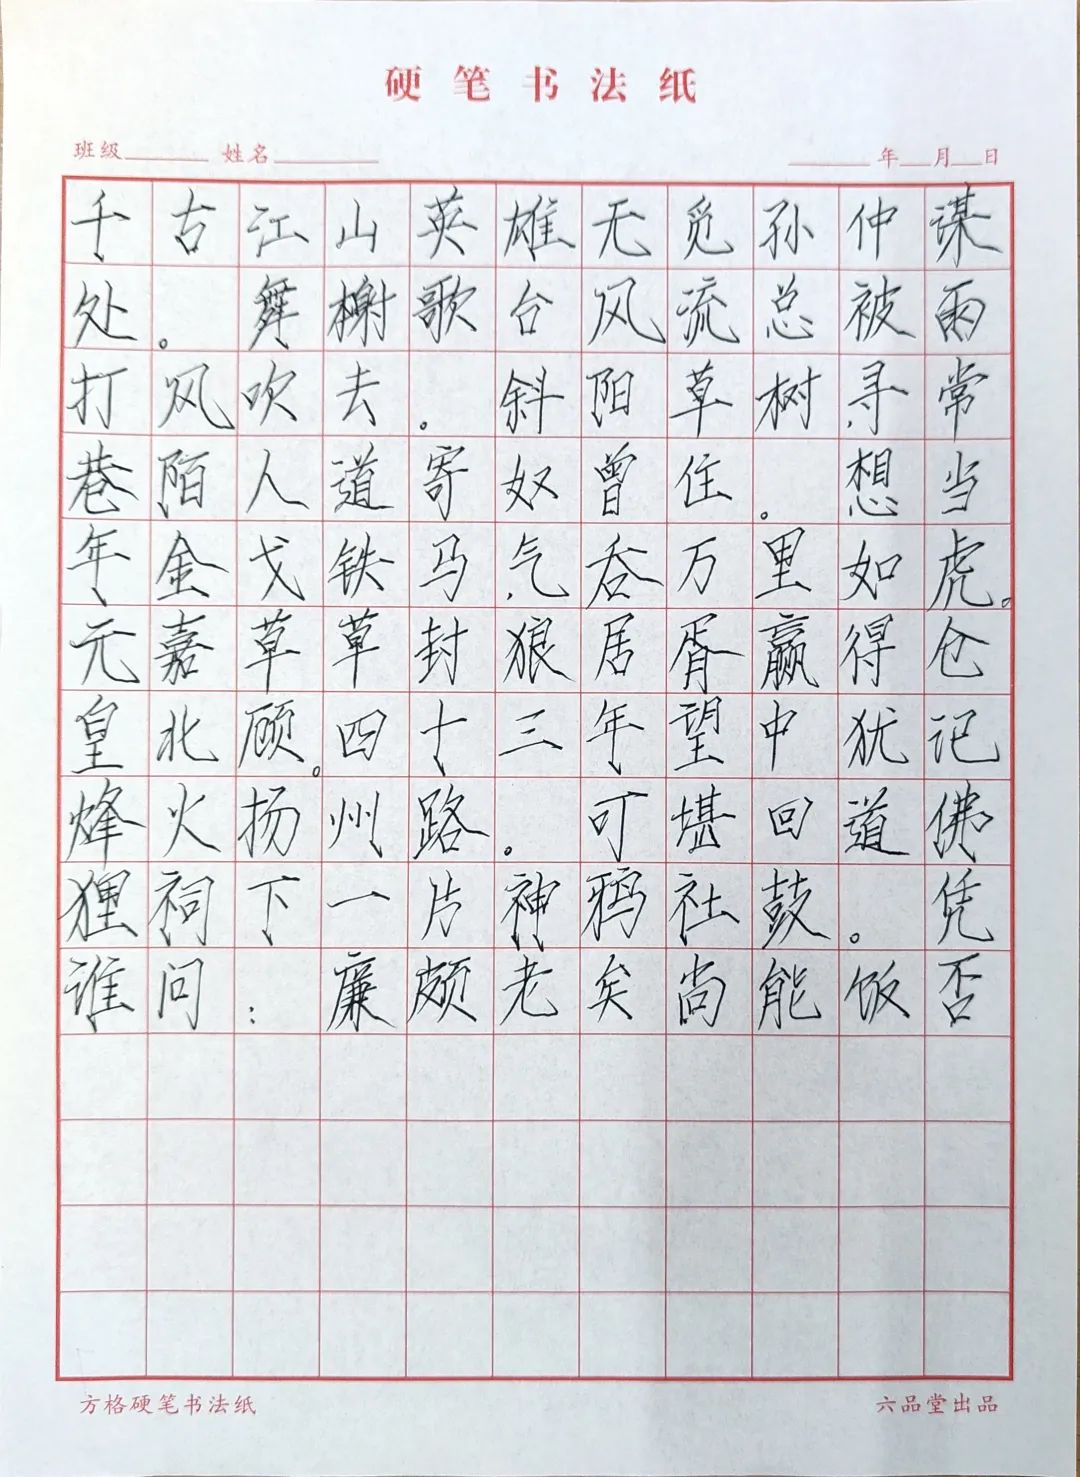 硬笔书法纸
班级 姓名 年 月 日
千古江山英雄无觅孙仲谋
处。舞榭歌台风流总被雨
打风吹去。斜阳草树寻常
巷陌人道寄奴曾住。想当
年金戈铁马气吞万里如虎。
元嘉草草封狼居胥赢得仓
皇北顾。四十三年望中犹记
烽火扬州路。可堪回道佛
狸祠下一片神鸦社鼓。凭
谁问：廉颇老矣尚能饭否
方格硬笔书法纸 六品堂出品